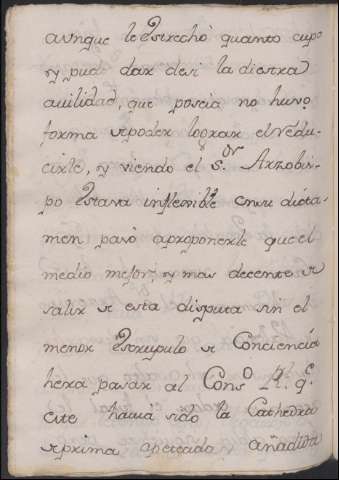 aunque le Estrechò quanto cupo
y pudo dar desi la diestra
auilidad, que poseia no huvo
forma de poder lograr el redu-
cirle, y viendo el S.or Arzobis-
po Estava inflesible ensu dicta-
men pasò aproponerle que el
medio mejor, y mas decente de
salir de esta disputa sin el
menor Escrupulo de Conciencia
hera pasar al Cons.o R.l q.e
este hauia sido la Cathedra
de prima apetecida, añadida